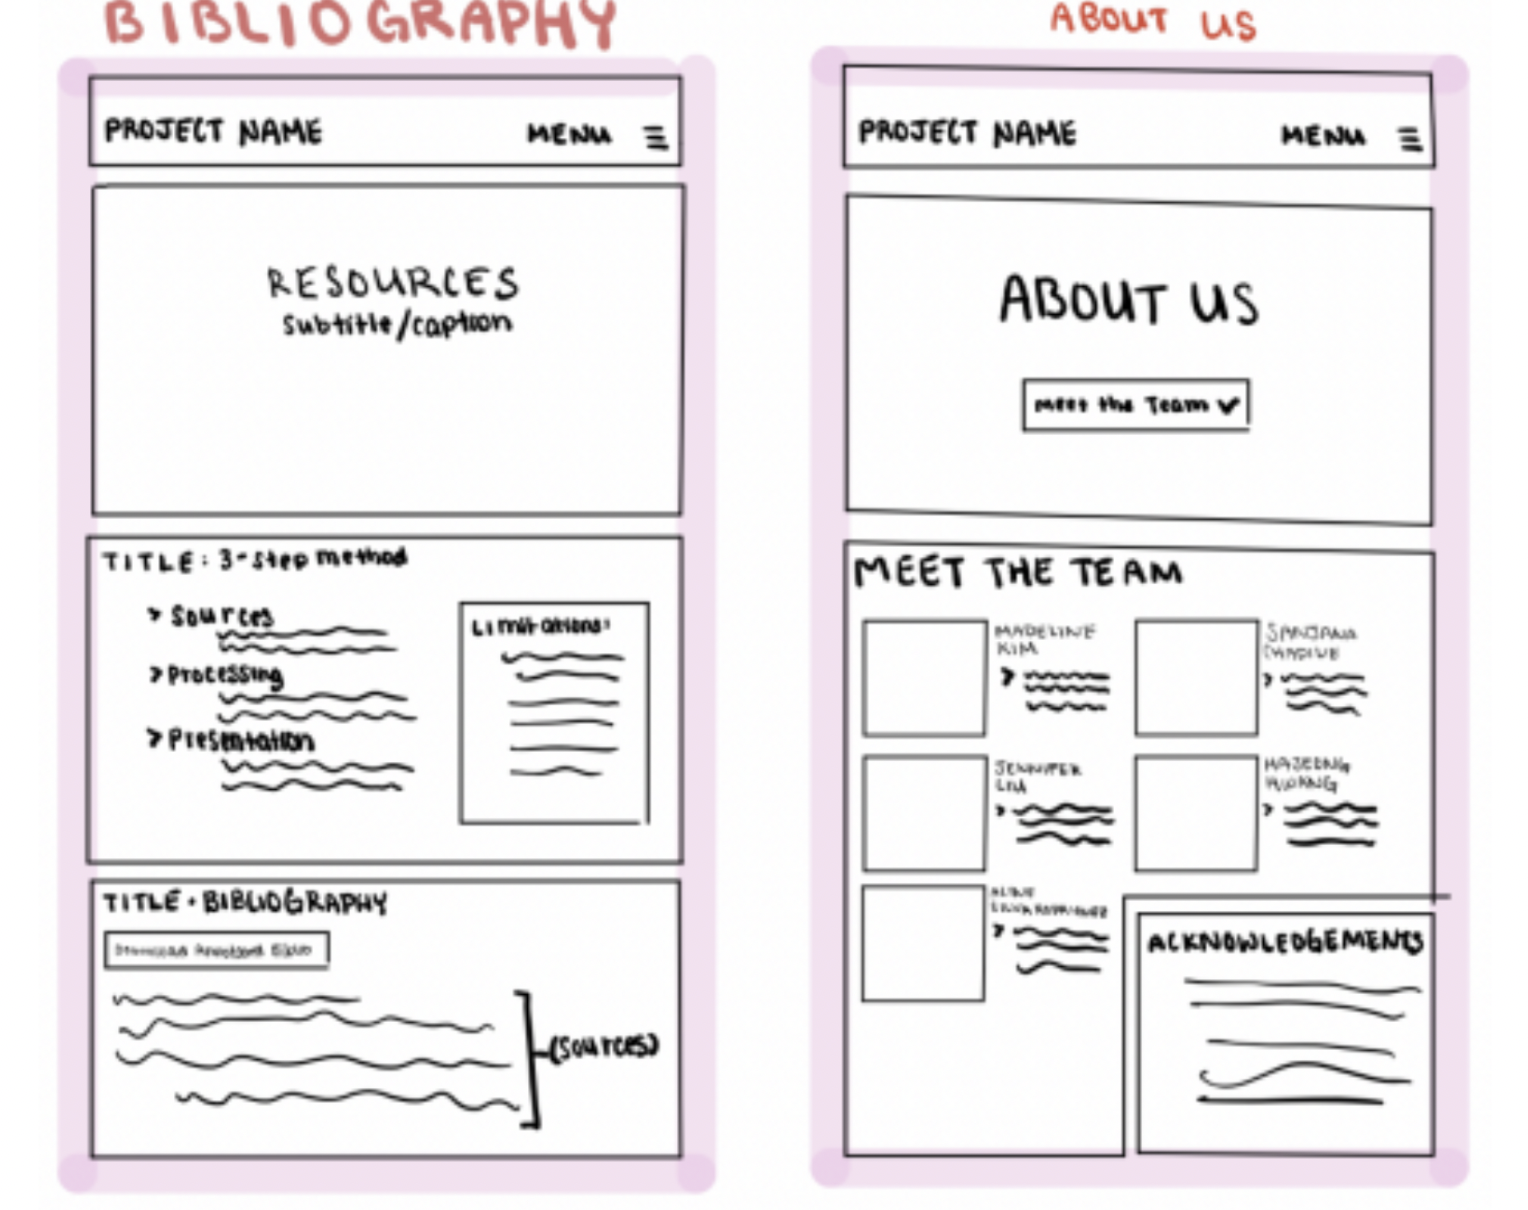 BIBLIOGRAPHY
PROJECT NAME MENU
RESOURCES
subtitle/caption
TITLE: 3-step method
> Sources
> Processing
> Presentation
Limitations:
TITLE • BIBLIOGRAPHY
(Sources)
ABOUT US
PROJECT NAME MENU
ABOUT US
Meet the Team
MEET THE TEAM
MADELINE
KIM
SANJANA
JENNIFER
HAJEONG
HWANG
ACKNOWLEDGEMENTS